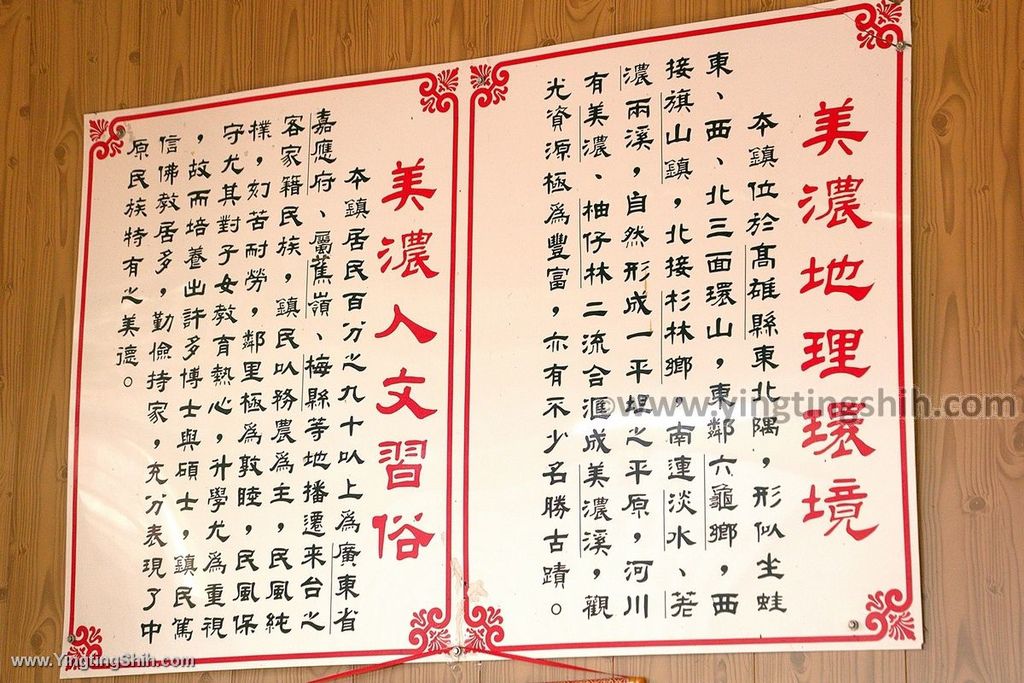 美濃地理環境
本鎮位於高雄縣東北隅，形似坐蛙
東、西、北三面環山，東鄰六龜鄉，西
接旗山鎮，北接杉林鄉，南連淡水、荖
濃兩溪，自然形成一平坦之平原，河川
有美濃、柚仔林二流合滙成美濃溪，觀
光資源極為豐富，亦有不少名勝古蹟。
美濃人文習俗
本鎮居民百分之九十以上為廣東省
嘉應府、屬蕉嶺、梅縣等地播遷來台之
客家籍民族，鎮民以務農為主，民風純
樸，刻苦耐勞，鄰里極為敦睦，民風保
守尤其對子女教育熱心，升學尤為重視
，故而培養出許多博士與碩士，鎮民篤
信佛教居多，勤儉持家，充分表現了中
原民族特有之美德。
©www.yingtingshih.com
www.YingtingShih.com